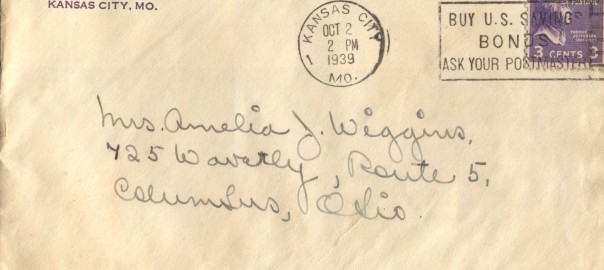 KANSAS CITY, MO.
KANSAS CITY
OCT 2
2 PM
1939
MO.
1
BUY U.S. SAVINGS
BONDS
ASK YOUR POSTMASTER
3 CENTS 3
Mrs. Amelia J. Wiggins,
725 Waverly, Route 5,
Columbus, Ohio.